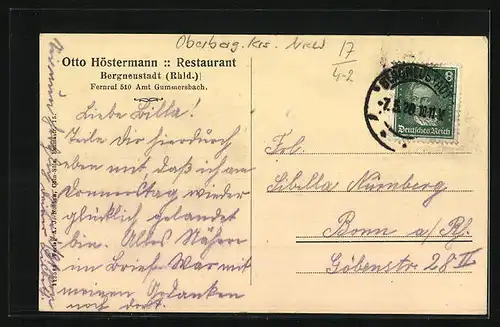 Oberberg. Krs. NRW 17
4-2
Otto Höstermann :: Restaurant
Bergneustadt (Rhld.)
Fernruf 510 Amt Gummersbach.
Liebe Billa!
Teile dir hierdurch
eben mit daß ich am
Donnerstag wieder
glücklich gelandet
bin. Alles Nähere
im Brief. War mit
meinen Gedanken
noch dort.
8
Deutsches Reich
Frl.
Sibilla Nürnberg
Bonn a/Rh.
Göbenstr. 28 II